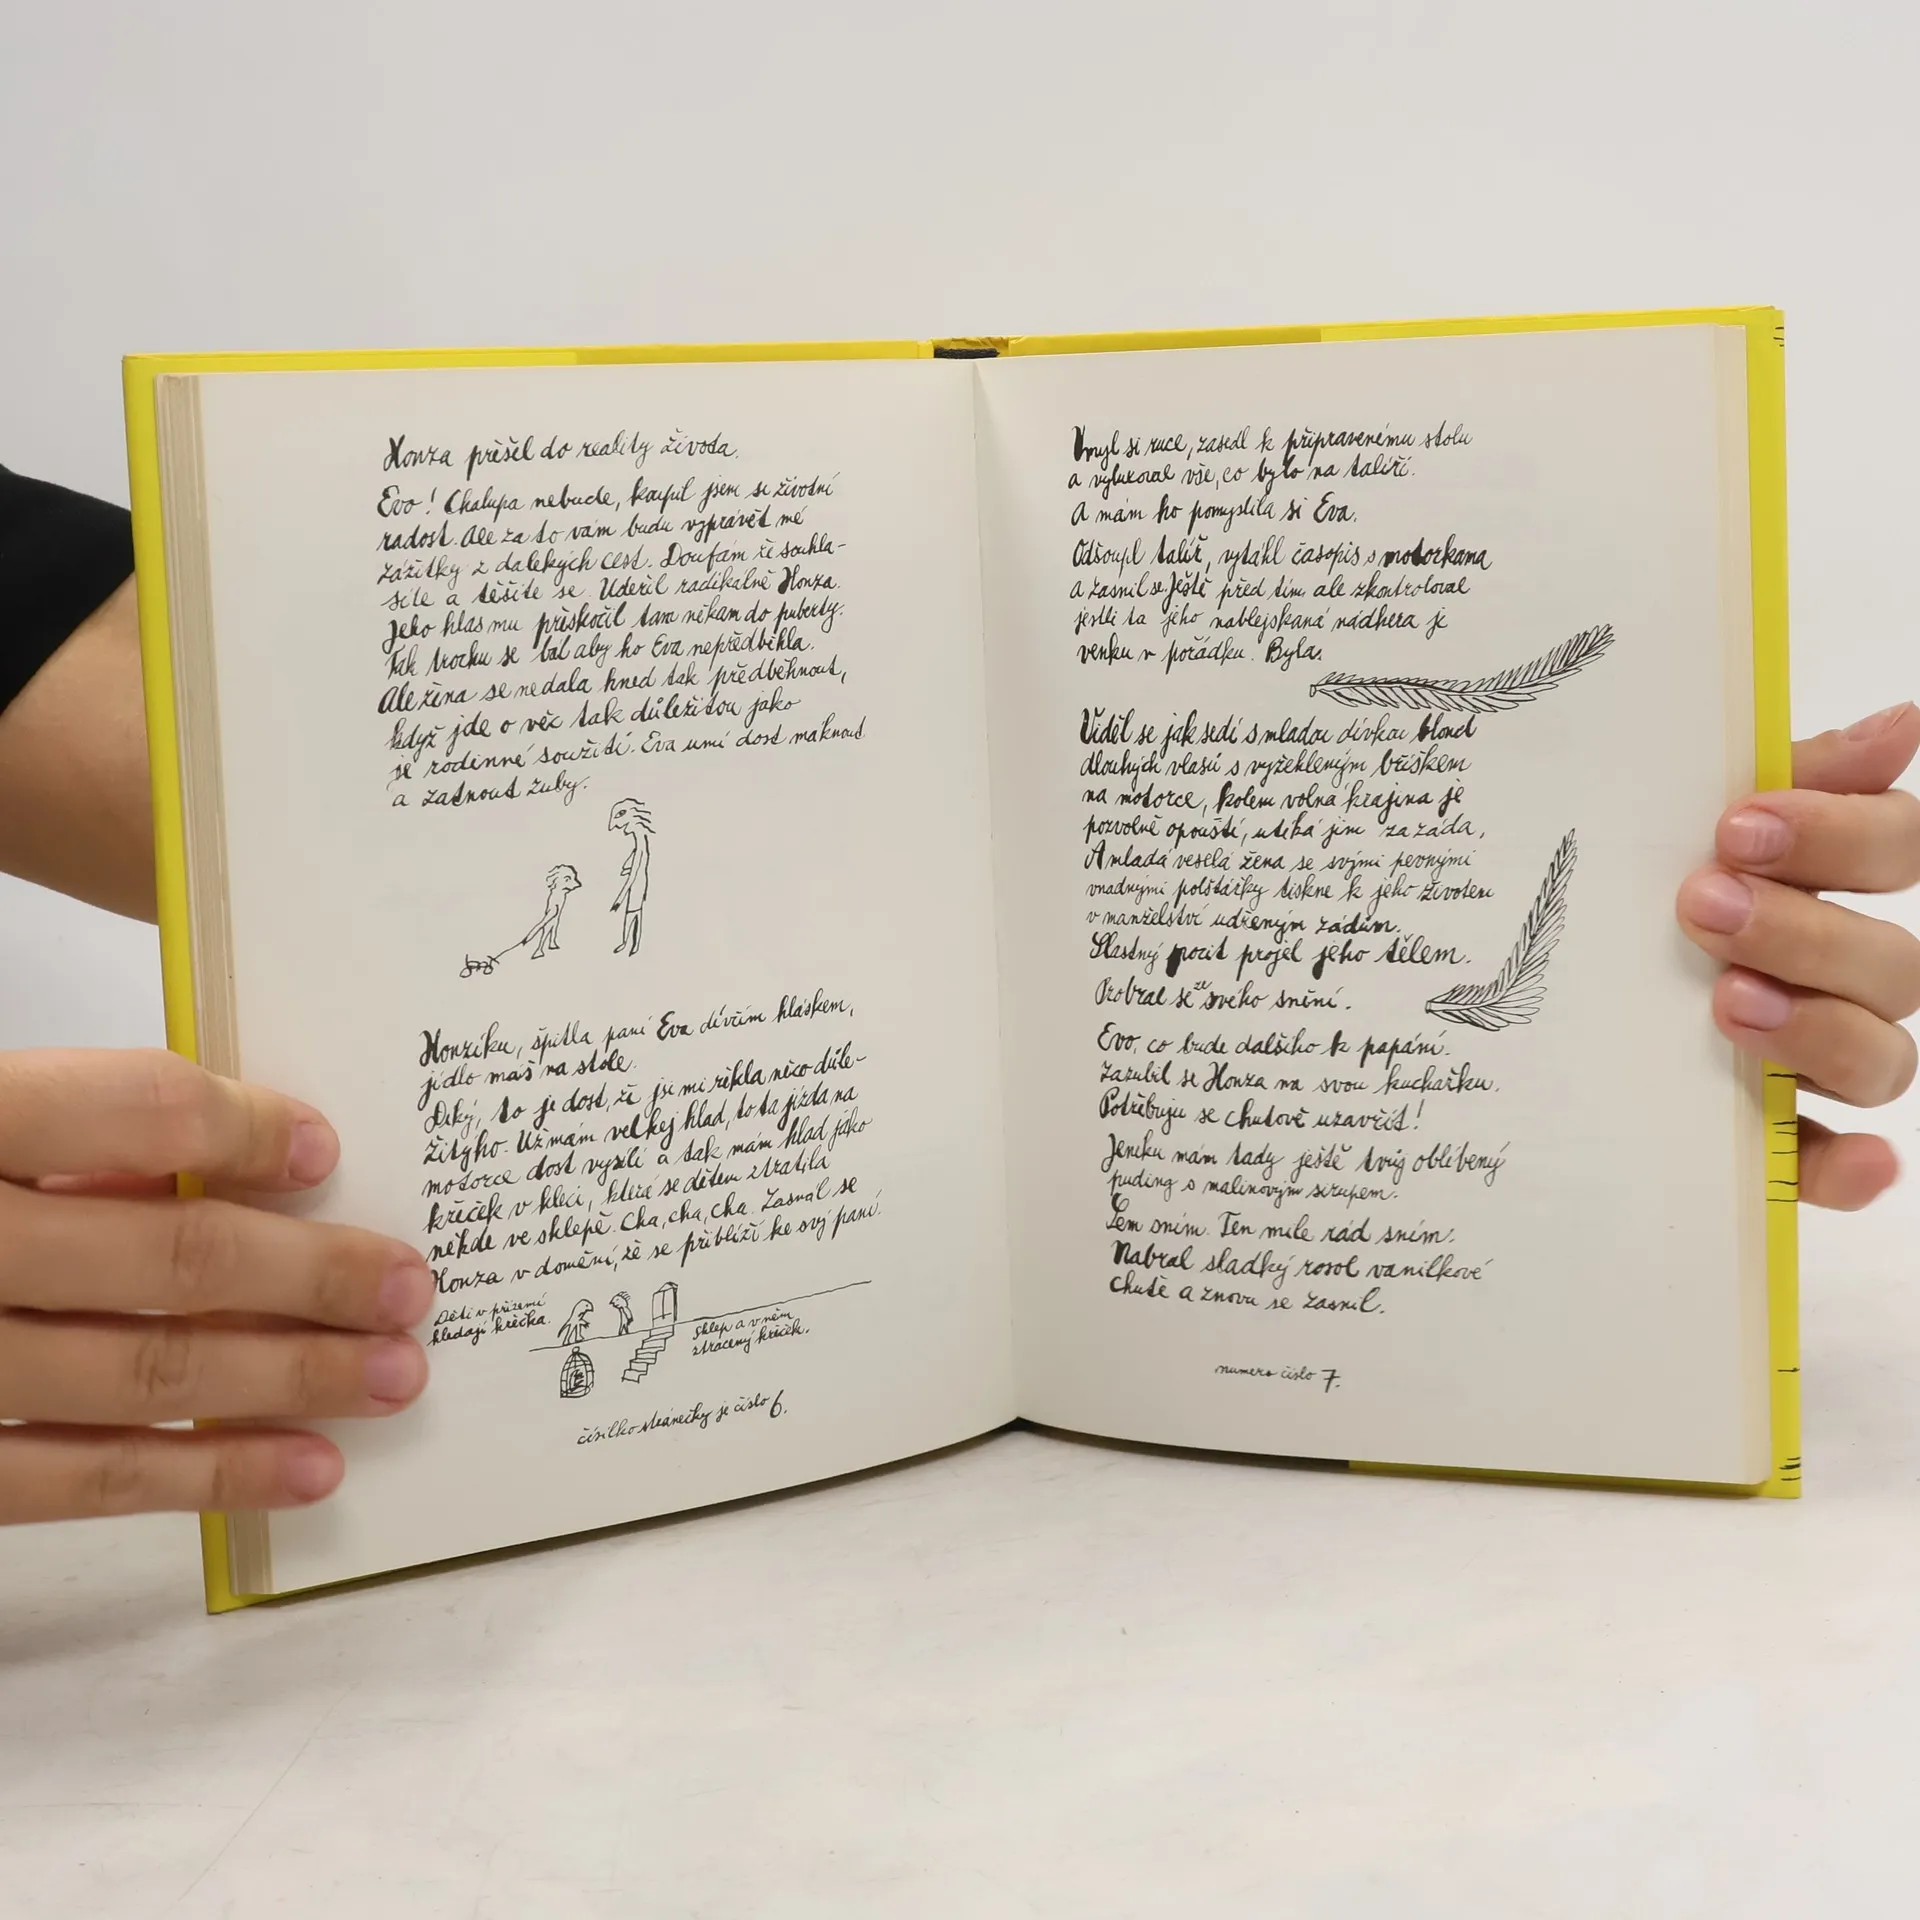 Honza přešel do reality života.
Evo! Chalupa nebude, koupil jsem si životní
radost. Ale za to vám budu vyprávět mé
zážitky z dalekých cest. Doufám že souhla-
síte a těšíte se. Udeřil radikálně Honza.
Jeho hlas mu přeskočil tam někam do puberty.
Tak trochu se bál aby ho Eva nepředběhla.
Ale žena se nedala hned tak předběhnout,
když jde o věc tak důležitou jako
je rodinné soužití. Eva umí dost máknout
a zatnout zuby.
Honzíku, špitla paní Eva dívčím hláskem,
jídlo máš na stole.
Díky, to je dost, že jsi mi řekla něco důle-
žitýho. Už mám velkej hlad, to ta jízda na
motorce dost vysílí a tak mám hlad jako
křeček v kleci, která se dětem ztratila
někde ve sklepě. Cha, cha, cha. Zasmál se
Honza v domění, že se přiblíží ke svý paní.
Děti v přízemí
hledají křečka.
Sklep a v něm
ztracený křeček.
čísilko stránečky je číslo 6.
Umyl si ruce, zasedl k připravenému stolu
a vyluxoval vše, co bylo na talíři.
A mám ho pomyslila si Eva.
Odsoupl talíř, vytáhl časopis s motorkama
a zasnil se. Ještě před tím ale zkontroloval
jestli ta jeho nablejskaná nádhera je
venku v pořádku. Byla.
Viděl se jak sedí s mladou dívkou blond
dlouhých vlasů s vyžehleným bříškem
na motorce, kolem volná krajina je
pozvolně opouští, utíká jim za záda,
A mladá veselá žena se svými pevnými
vnadnými polštářky tiskne k jeho životem
v manželství udřeným zádům.
Slastný pocit projel jeho tělem.
Probral se ze svého snění.
Evo, co bude dalšího k papání.
Zazubil se Honza na svou kuchařku.
Potřebuju se chuťově uzavřít!
Jeníku mám tady ještě tvůj oblíbený
puding s malinovým sirupem.
Sem sním. Ten míle rád sním.
Nabral sladký rosol vanilkové
chutě a znovu se zasnil.
numero číslo 7.